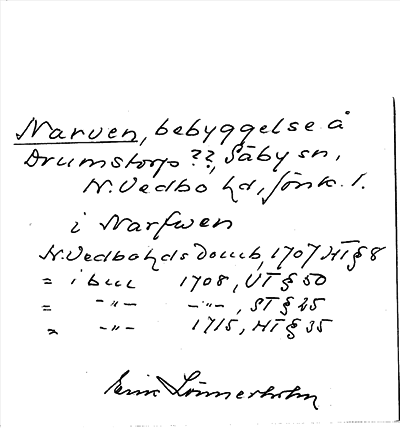 Narven, bebyggelse å
Drumstorp??, Säby sn,
N. Vedbo hd, Jönk. l.
i Narfwen
N. Vedbo hds domb, 1707 HT § 8
= i bm 1708, VT § 50
= -"- -"-, ST § 25
= -"- 1715, HT § 35
Erik Lönnerholm